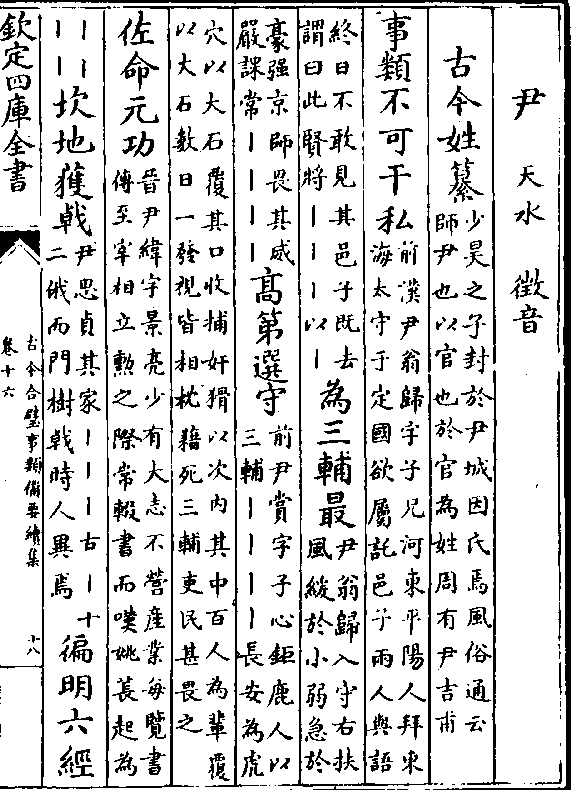 尹 天水 徵音
古今姓纂 少昊之子封於尹城因氏焉風俗通云
師尹也以官也於官為姓周有尹吉甫
事類不可干私 前漢尹翁歸字子兄河東平陽人拜東
海太守于定國欲屬託邑子兩人與語
終日不敢見其邑子既去
謂曰此賢將丨丨丨以丨
為三輔最 尹翁歸入守右扶
風緩於小弱急於
豪强京師畏其威
嚴課常丨丨丨丨
髙第選守 前尹賞字子心鉅鹿人以
三輔丨丨丨丨長安為虎
穴以大石覆其口收捕奸猾以次内其中百人為輩覆
以大石數日一發視皆相枕藉死三輔吏民甚畏之
佐命元功 晉尹緯字景亮少有大志不營産業每覽書
傳至宰相立勲之際常輟書而嘆姚萇起為
丨丨
丨丨
坎地獲戟 尹思貞其家丨丨丨古丨十
二俄而門樹戟時人異焉
徧明六經
欽定四庫全書
古今合璧事類備要續集
卷十六
十八